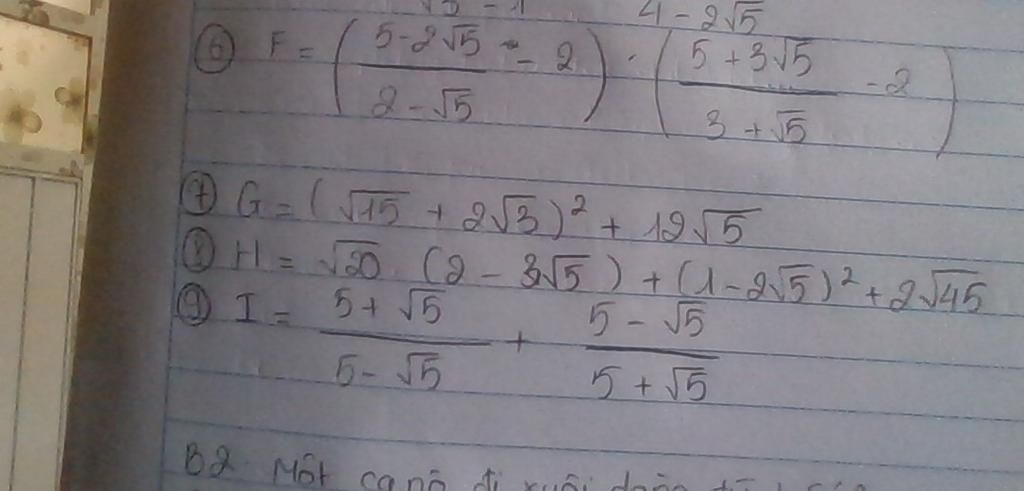 √5 - 1 4 - 2√5
⑥ F = ( (5 - 2√5)/(2 - √5) - 2 ) · ( (5 + 3√5)/(3 + √5) - 2 )
⑦ G = (√15 + 2√3)² + 12√5
⑧ H = √20 (2 - 3√5) + (1 - 2√5)² + 2√45
⑨ I = (5 + √5)/(5 - √5) + (5 - √5)/(5 + √5)
B2 Một ca nô đi xuôi dòng từ